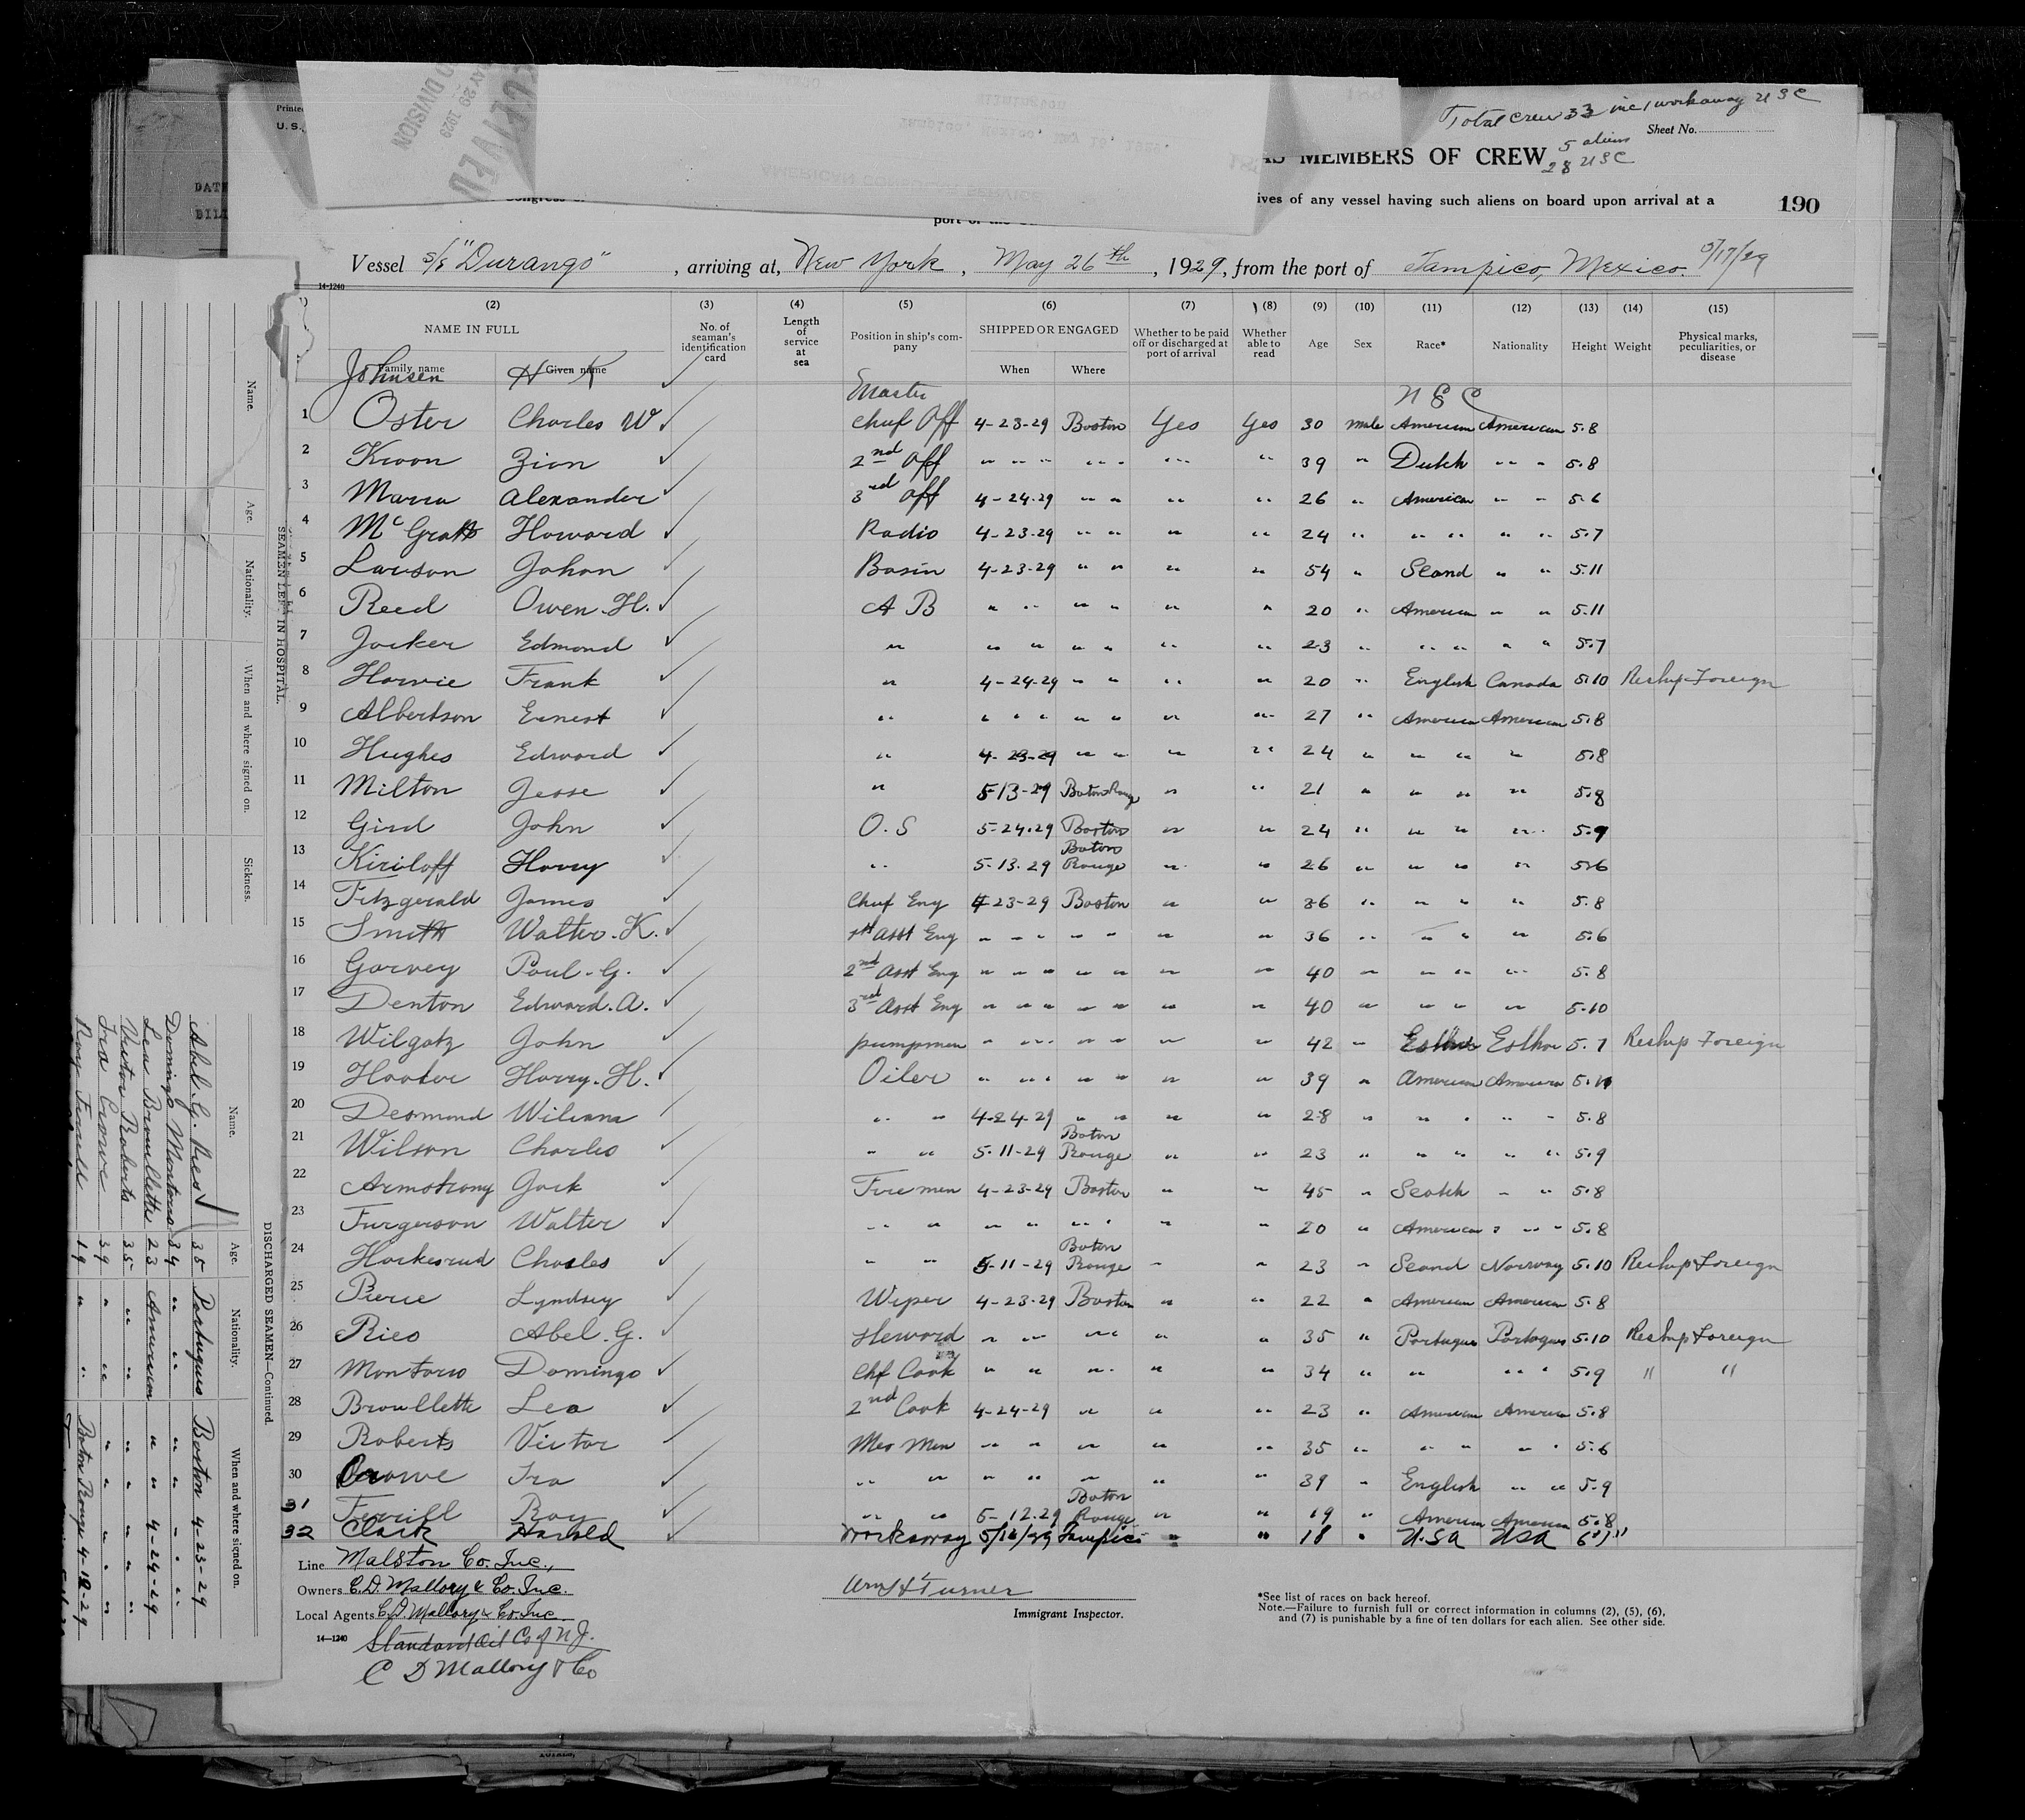 Total crew 33 inc 1 workaway USC
Sheet No.
5 aliens
28 USC
Printed
U. S.
RECEIVED
MAY 29 1929
DIVISION
AS MEMBERS OF CREW
ives of any vessel having such aliens on board upon arrival at a
190
port of the
Vessel S/S "Durango", arriving at, New York, May 26th, 1929, from the port of Tampico, Mexico. 5/17/29
14-1240
(2) (3) (4) (5) (6) (7) (8) (9) (10) (11) (12) (13) (14) (15)
NAME IN FULL No. of seaman's identification card Length of service at sea Position in ship's company SHIPPED OR ENGAGED Whether to be paid off or discharged at port of arrival Whether able to read Age Sex Race* Nationality Height Weight Physical marks, peculiarities, or disease
Family name Given name When Where
Johnsen H K Master USC
1 Oster Charles W Chief Off 4-23-29 Boston Yes Yes 30 male American American 5.8
2 Kroon Zion 2nd Off " " " " " " " " " 39 " Dutch " " " 5.8
3 Marra Alexander 3rd Off 4-24-29 " " " " 26 " American " " 5.6
4 McGrath Howard Radio 4-23-29 " " " " 24 " " " " " 5.7
5 Lawson Johan Bosin 4-23-29 " " " " 54 " Scand " " 5.11
6 Reed Owen. H. A B " " " " " " 20 " American " " 5.11
7 Jocker Edmond " " " " " " " 23 " " " " " 5.7
8 Howie Frank " 4-24-29 " " " " 20 " English Canada 5.10 Reship Foreign
9 Albertson Ernest " " " " " " " " 27 " American American 5.8
10 Hughes Edward " 4-23-29 " " " " 24 " " " " 5.8
11 Milton Jesse " 5-13-29 Baton Rouge " " 21 " " " " 5.8
12 Gird John O. S 5-24-29 Boston " " 24 " " " " 5.9
13 Kiriloff Harry " 5-13-29 Baton Rouge " " 26 " " " " 5.6
14 Fitzgerald James Chief Eng 4-23-29 Boston " " 36 " " " " 5.8
15 Smith Walter. K. 1st Asst Eng " " " " " " " 36 " " " " 5.6
16 Garvey Paul. G. 2nd Asst Eng " " " " " " " 40 " " " " 5.8
17 Denton Edward. A. 3rd Asst Eng " " " " " " " 40 " " " " 5.10
18 Wilgatz John pumpman " " " " " " 42 " Esthon Esthon 5.7 Reship Foreign
19 Hooker Harry. H. Oiler " " " " " " " 39 " American American 5.11
20 Desmond Wiliam " " 4-24-29 " " " " 28 " " " " " 5.8
21 Wilson Charles " " 5-11-29 Baton Rouge " " 23 " " " " " 5.9
22 Armstrong Jack Fire men 4-23-29 Boston " " 45 " Scotch " " 5.8
23 Furgerson Walter " " " " " " " " 20 " American " " " 5.8
24 Hockesrud Charles " " 5-11-29 Baton Rouge " " 23 " Scand Norway 5.10 Reship Foreign
25 Pierie Lyndsey Wiper 4-23-29 Boston " " 22 " American American 5.8
26 Ries Abel. G. Steward " " " " " 35 " Portugus Portugus 5.10 Reship Foreign
27 Montario Domingo Chf Cook " " " " " 34 " " " " 5.9 " "
28 Broullette Leo 2nd Cook 4-24-29 " " " 23 " American American 5.8
29 Roberts Victor Mes Men " " " " " 35 " " " " " 5.6
30 Crowe Ira " " " " " " " 39 " English " " 5.9
31 Ferrill Roy " " 5-12-29 Baton Rouge " " 19 " American American 5.8
32 Clark Harold workaway Tampico " " 18 " U.S.A USA 6'1"
Line Malston Co. Inc.,
Owners C.D. Mallory & Co. Inc.
Local Agents C.D. Mallory & Co. Inc
14-1240
Standard Oil Co of N.J.
C D Mallory & Co
Wm H Turner
Immigrant Inspector.
*See list of races on back hereof.
Note.—Failure to furnish full or correct information in columns (2), (5), (6),
and (7) is punishable by a fine of ten dollars for each alien. See other side.
SEAMEN LEFT IN HOSPITAL.
Name. Age. Nationality. When and where signed on. Sickness.
DISCHARGED SEAMEN—Continued.
Name. Age. Nationality. When and where signed on.
Abel. G. Ries 35 Portugus Boston 4-23-29
Domingo Montario 34 " " " " " "
Leo Broullette 23 American " " 4-24-29
Victor Roberts 35 " " " " " "
Ira Crowe 39 " " " " " "
Roy Ferrill 19 " " Baton Rouge